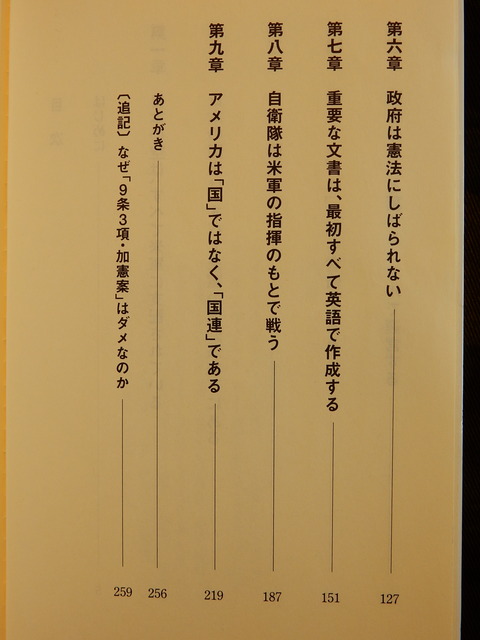 第六章 政府は憲法にしばられない 127
第七章 重要な文書は、最初すべて英語で作成する 151
第八章 自衛隊は米軍の指揮のもとで戦う 187
第九章 アメリカは「国」ではなく、「国連」である 219
あとがき 256
〔追記〕なぜ「9条3項・加憲案」はダメなのか 259